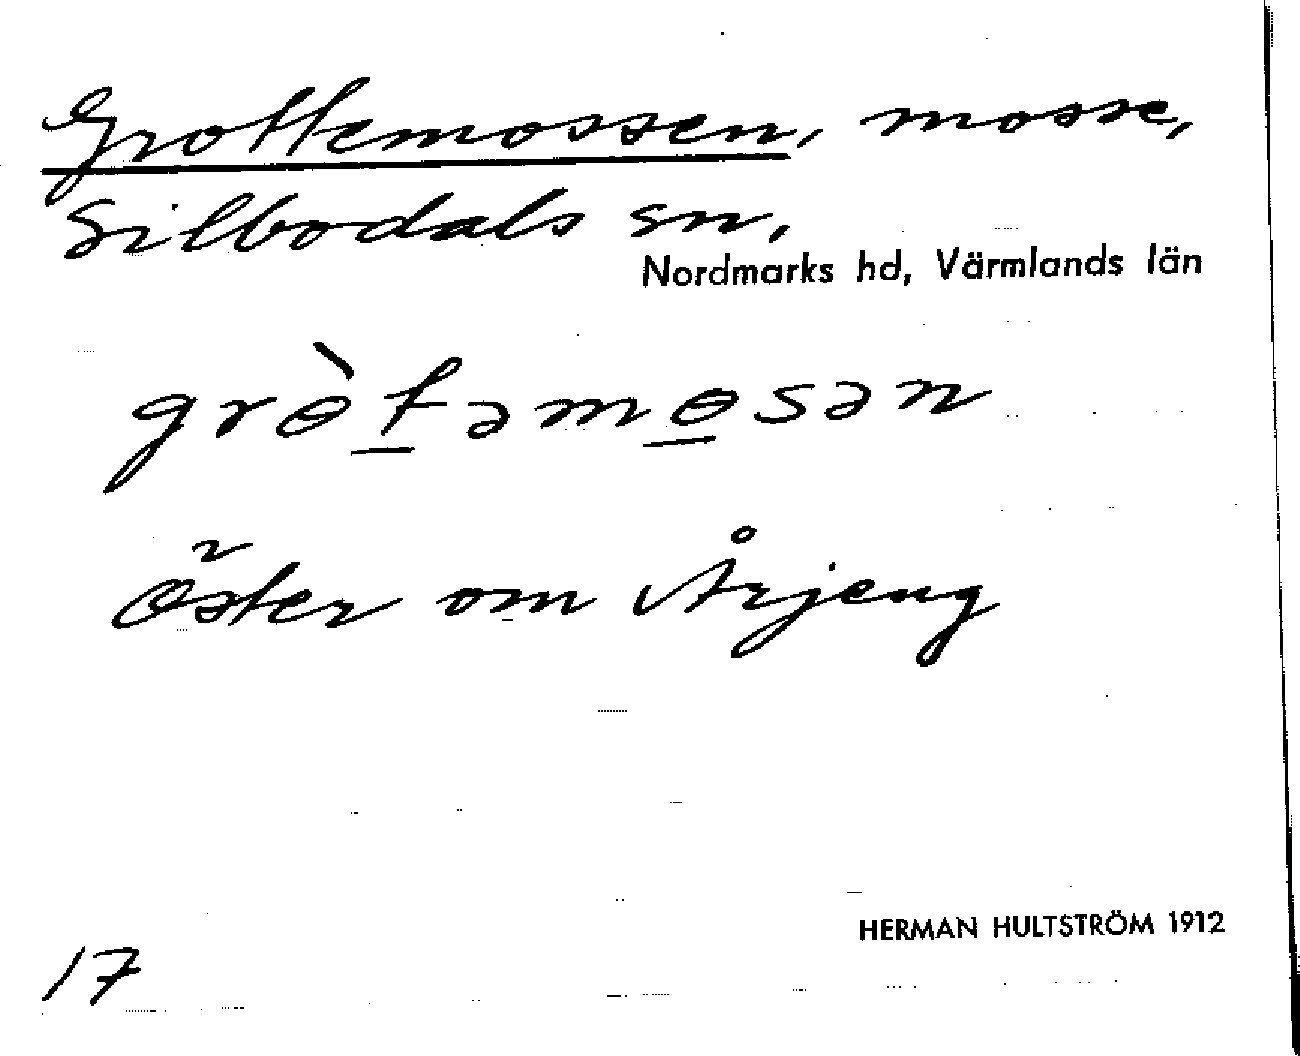 Grottemossen, mosse,
Silbodals sn,
Nordmarks hd, Värmlands län
grɵ̀t̲əmɵ̲sən
Öster om Årjeng
HERMAN HULTSTRÖM 1912
17